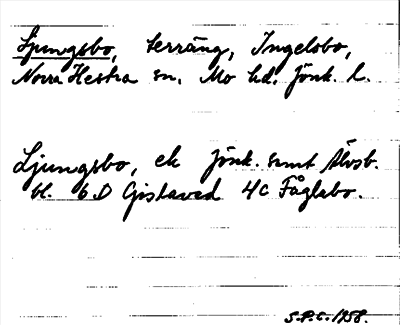 Ljungsbo, terräng, Ingelsbo,
Norra Hestra sn. Mo hd. Jönk. l.
Ljungsbo, ek Jönk. samt Älvsb.
bl. 6D Gislaved 4c Fåglabo.
S.P.C. 1958.